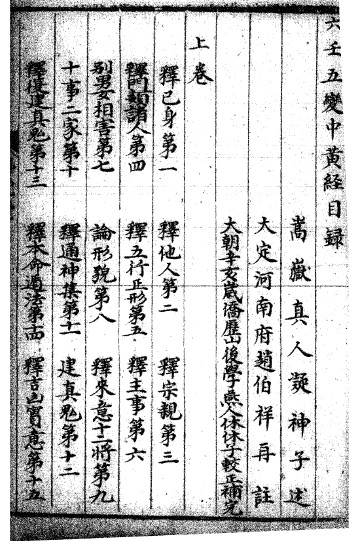 六壬五變中黃経目録
嵩嶽真人凝神子述
大定河南府趙伯祥再註
大朝辛亥歲僑歷山後學燕人休休子較正補完
上卷
釋己身第一　釋他人第二　釋宗親第三
釋門類諸人第四　釋五行正形第五　釋主事第六
别男女相害第七　論形貌第八　釋來意十二將第九
十事二家第十　釋通神集第十一　建真鬼第十二
釋復建真鬼第十三　釋本命過法第十四　釋吉凶實意第十五